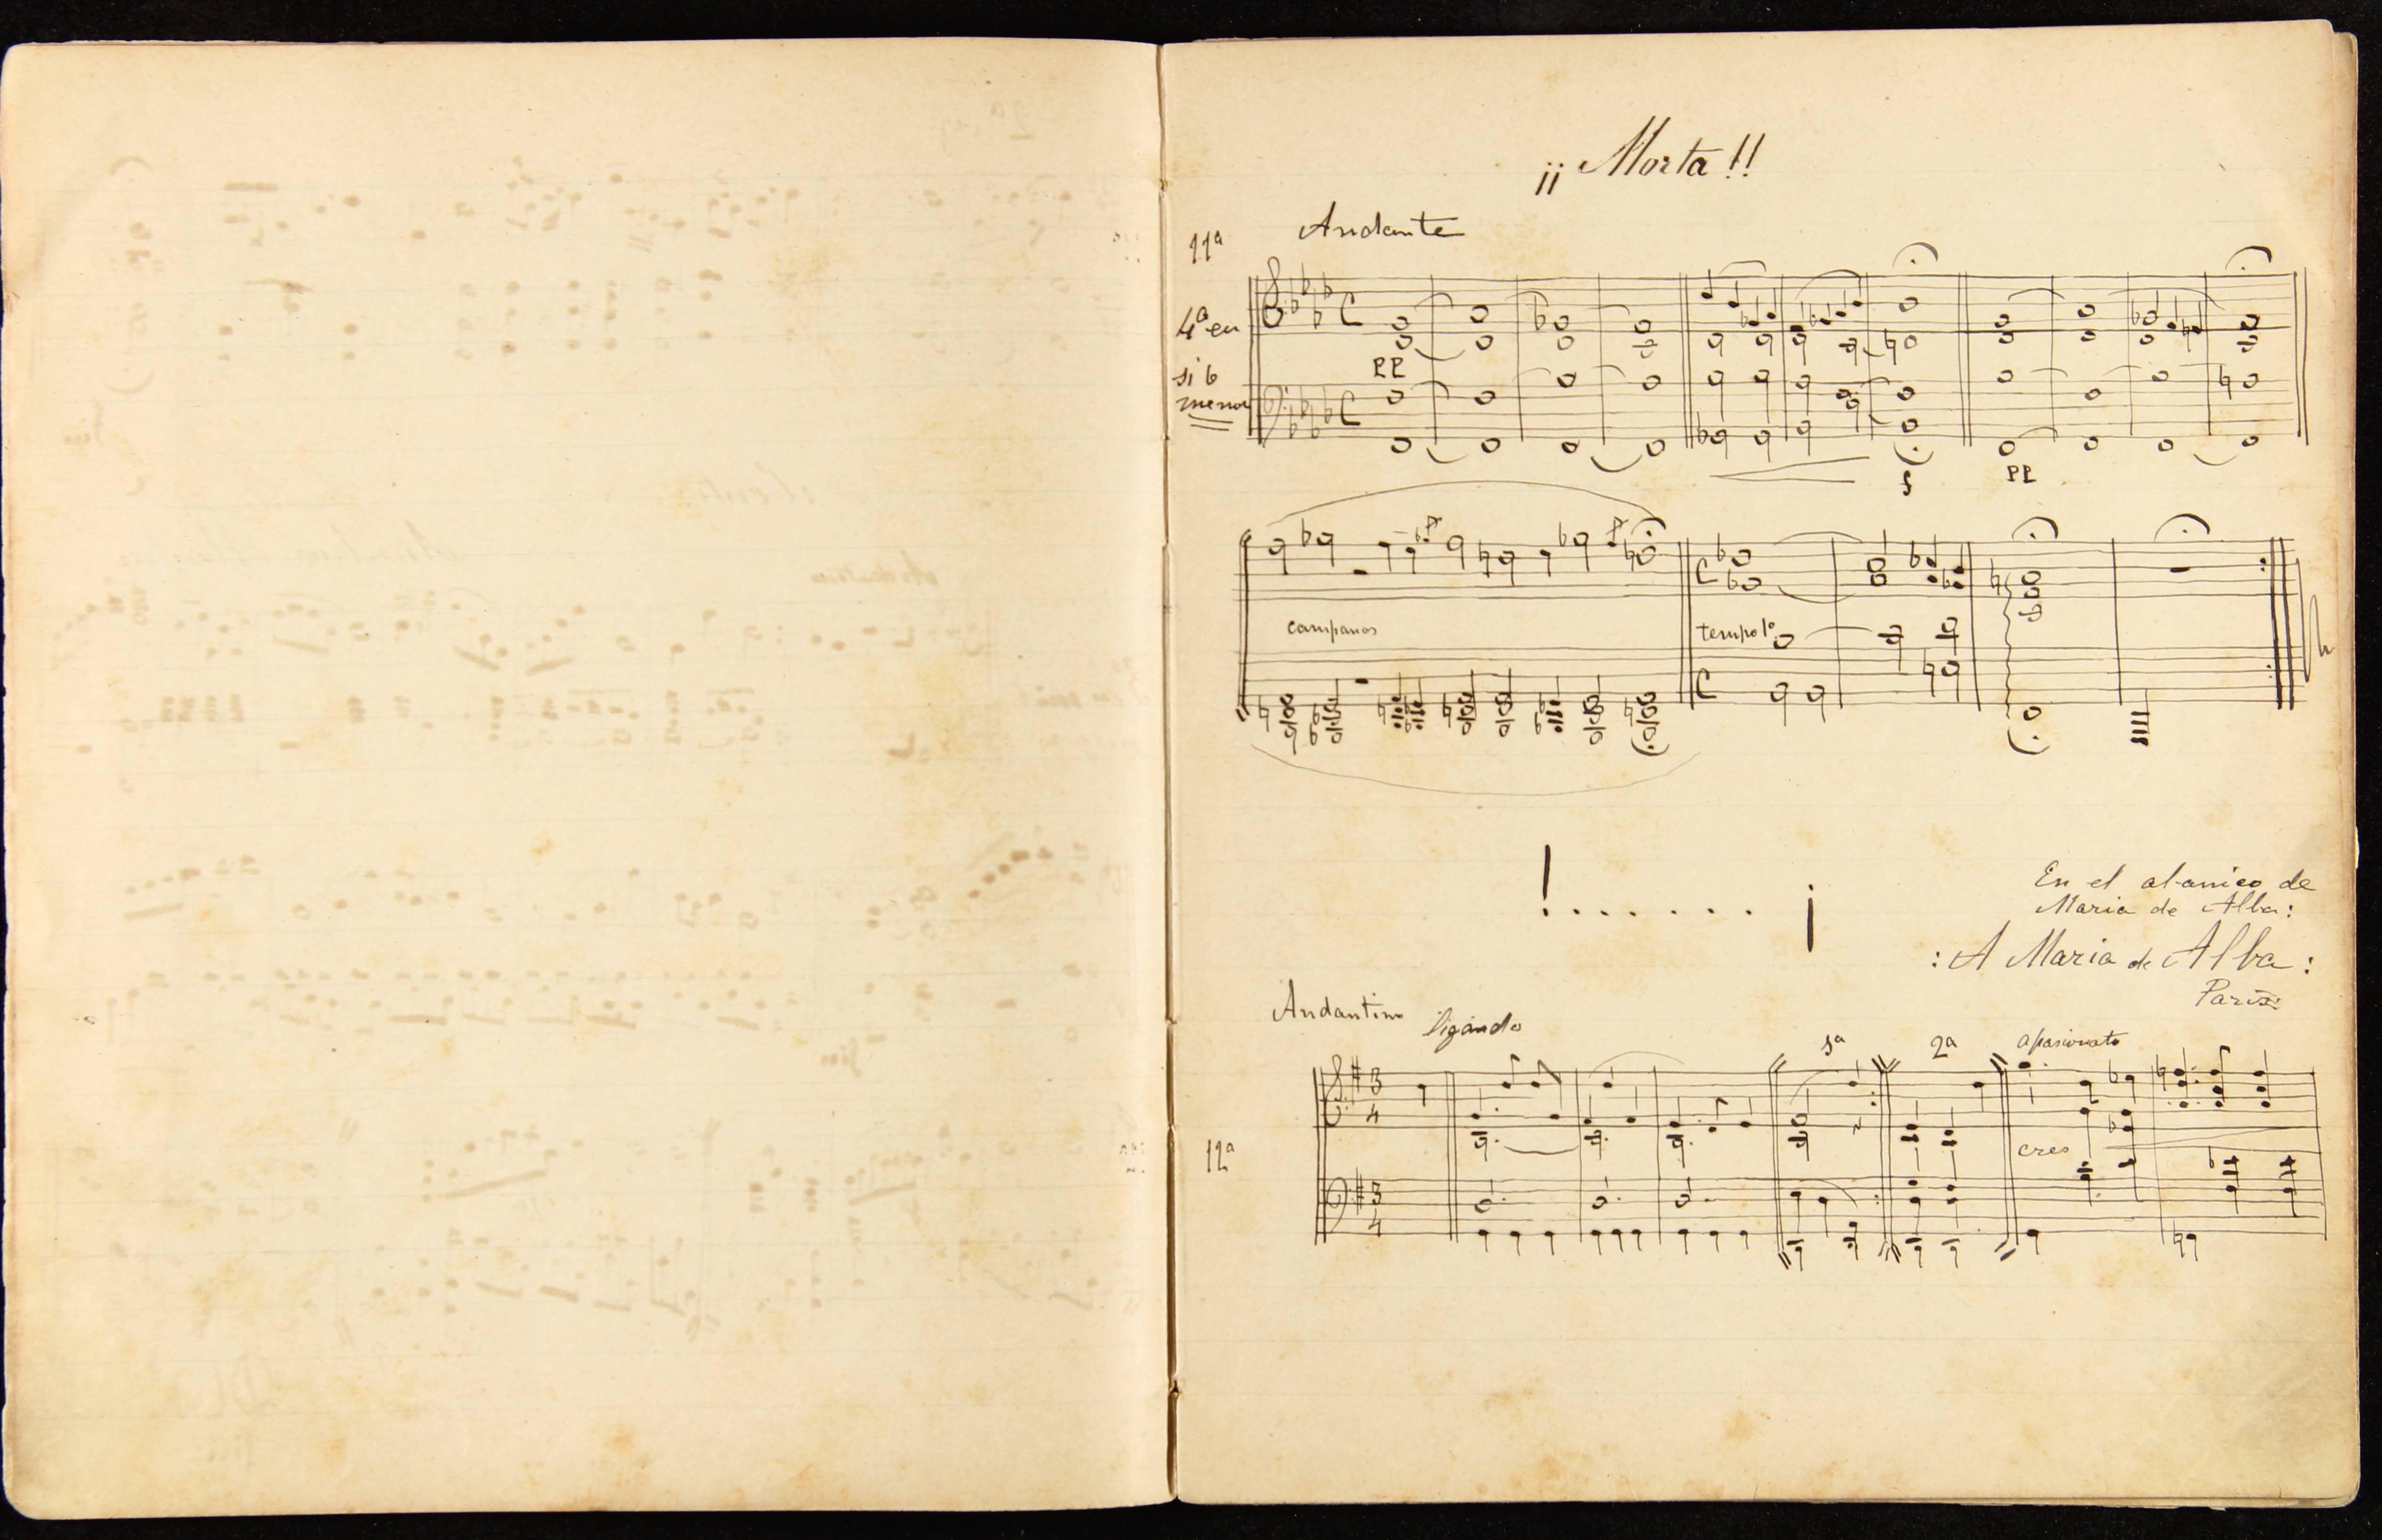 ¡¡ Morta !!
Andante
11ª
4ª en
si b
menor
pp
f
pp
campanas
tempo 1º
! . . . . . . . ¡
En el abanico de
Maria de Alba:
: A Maria de Alba :
Paris:
Andantino
ligando
1ª
2ª
apasionato
3
4
cres
12ª
3
4